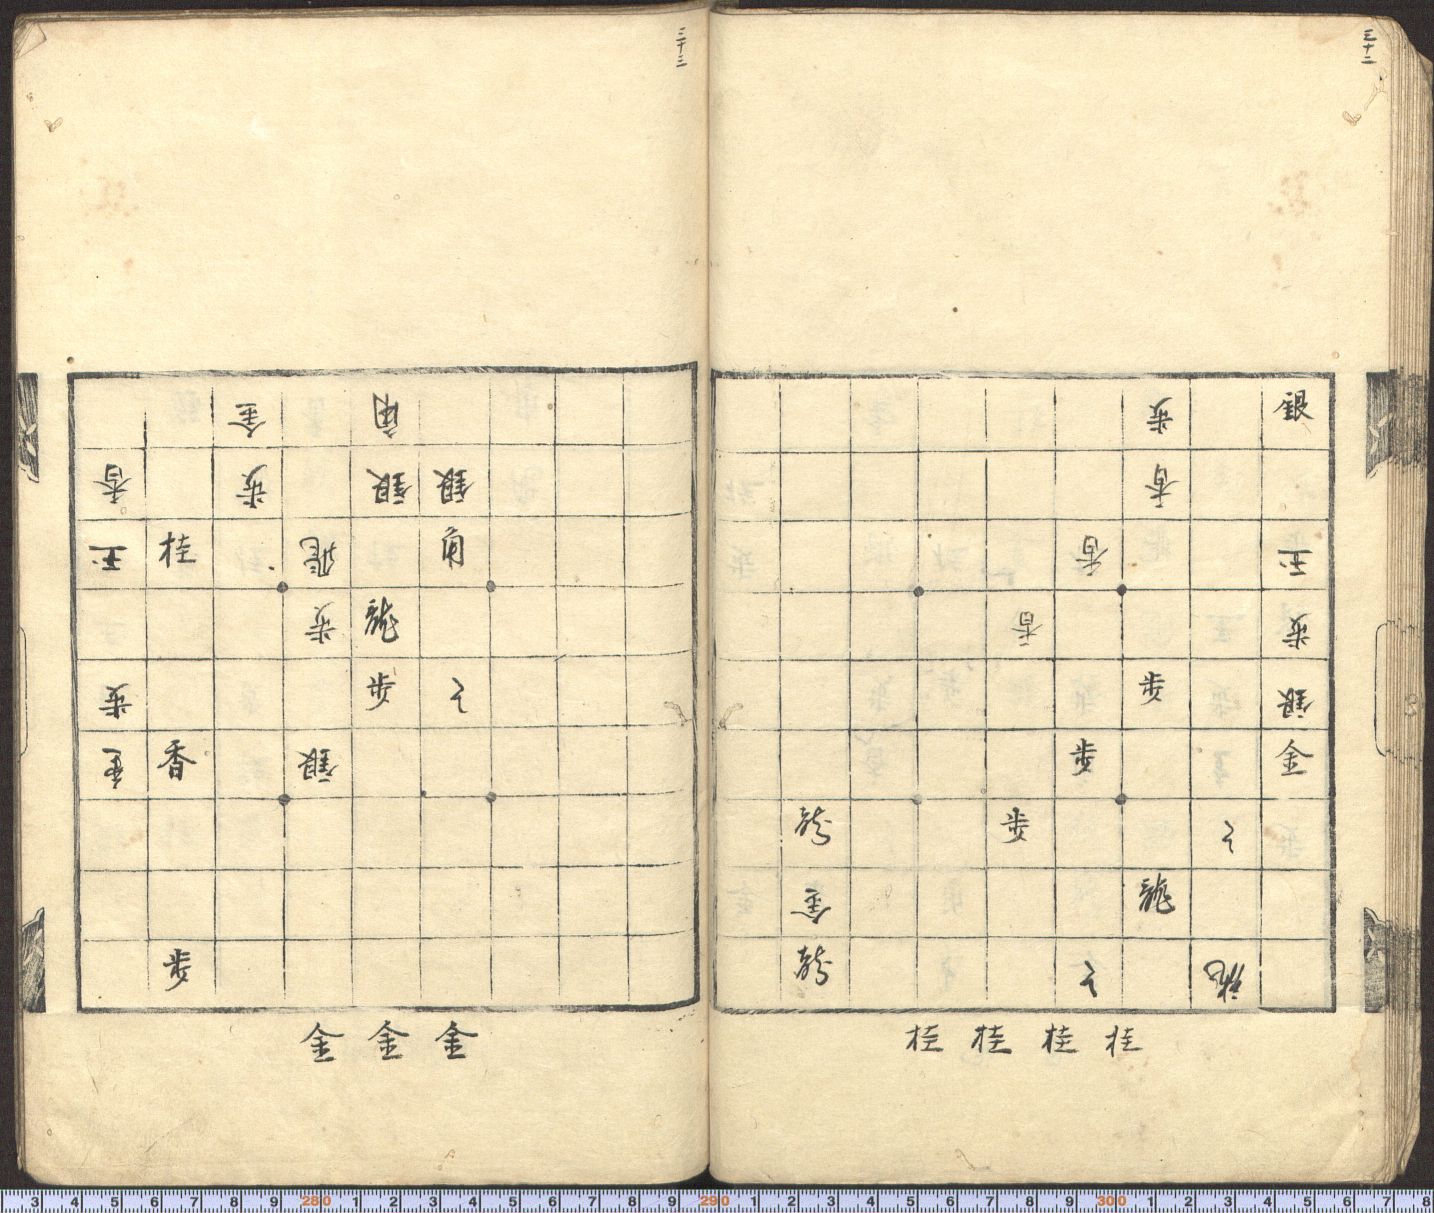 三十二
歩 銀
香
香 玉
香 歩
歩 銀
歩 金
馬 歩 と
金 龍
馬 と 龍
桂 桂 桂 桂
三十三
金 角
香 歩 銀 銀
玉 桂 飛 角
歩 龍
歩 歩 と
金 香 銀
歩
金 金 金